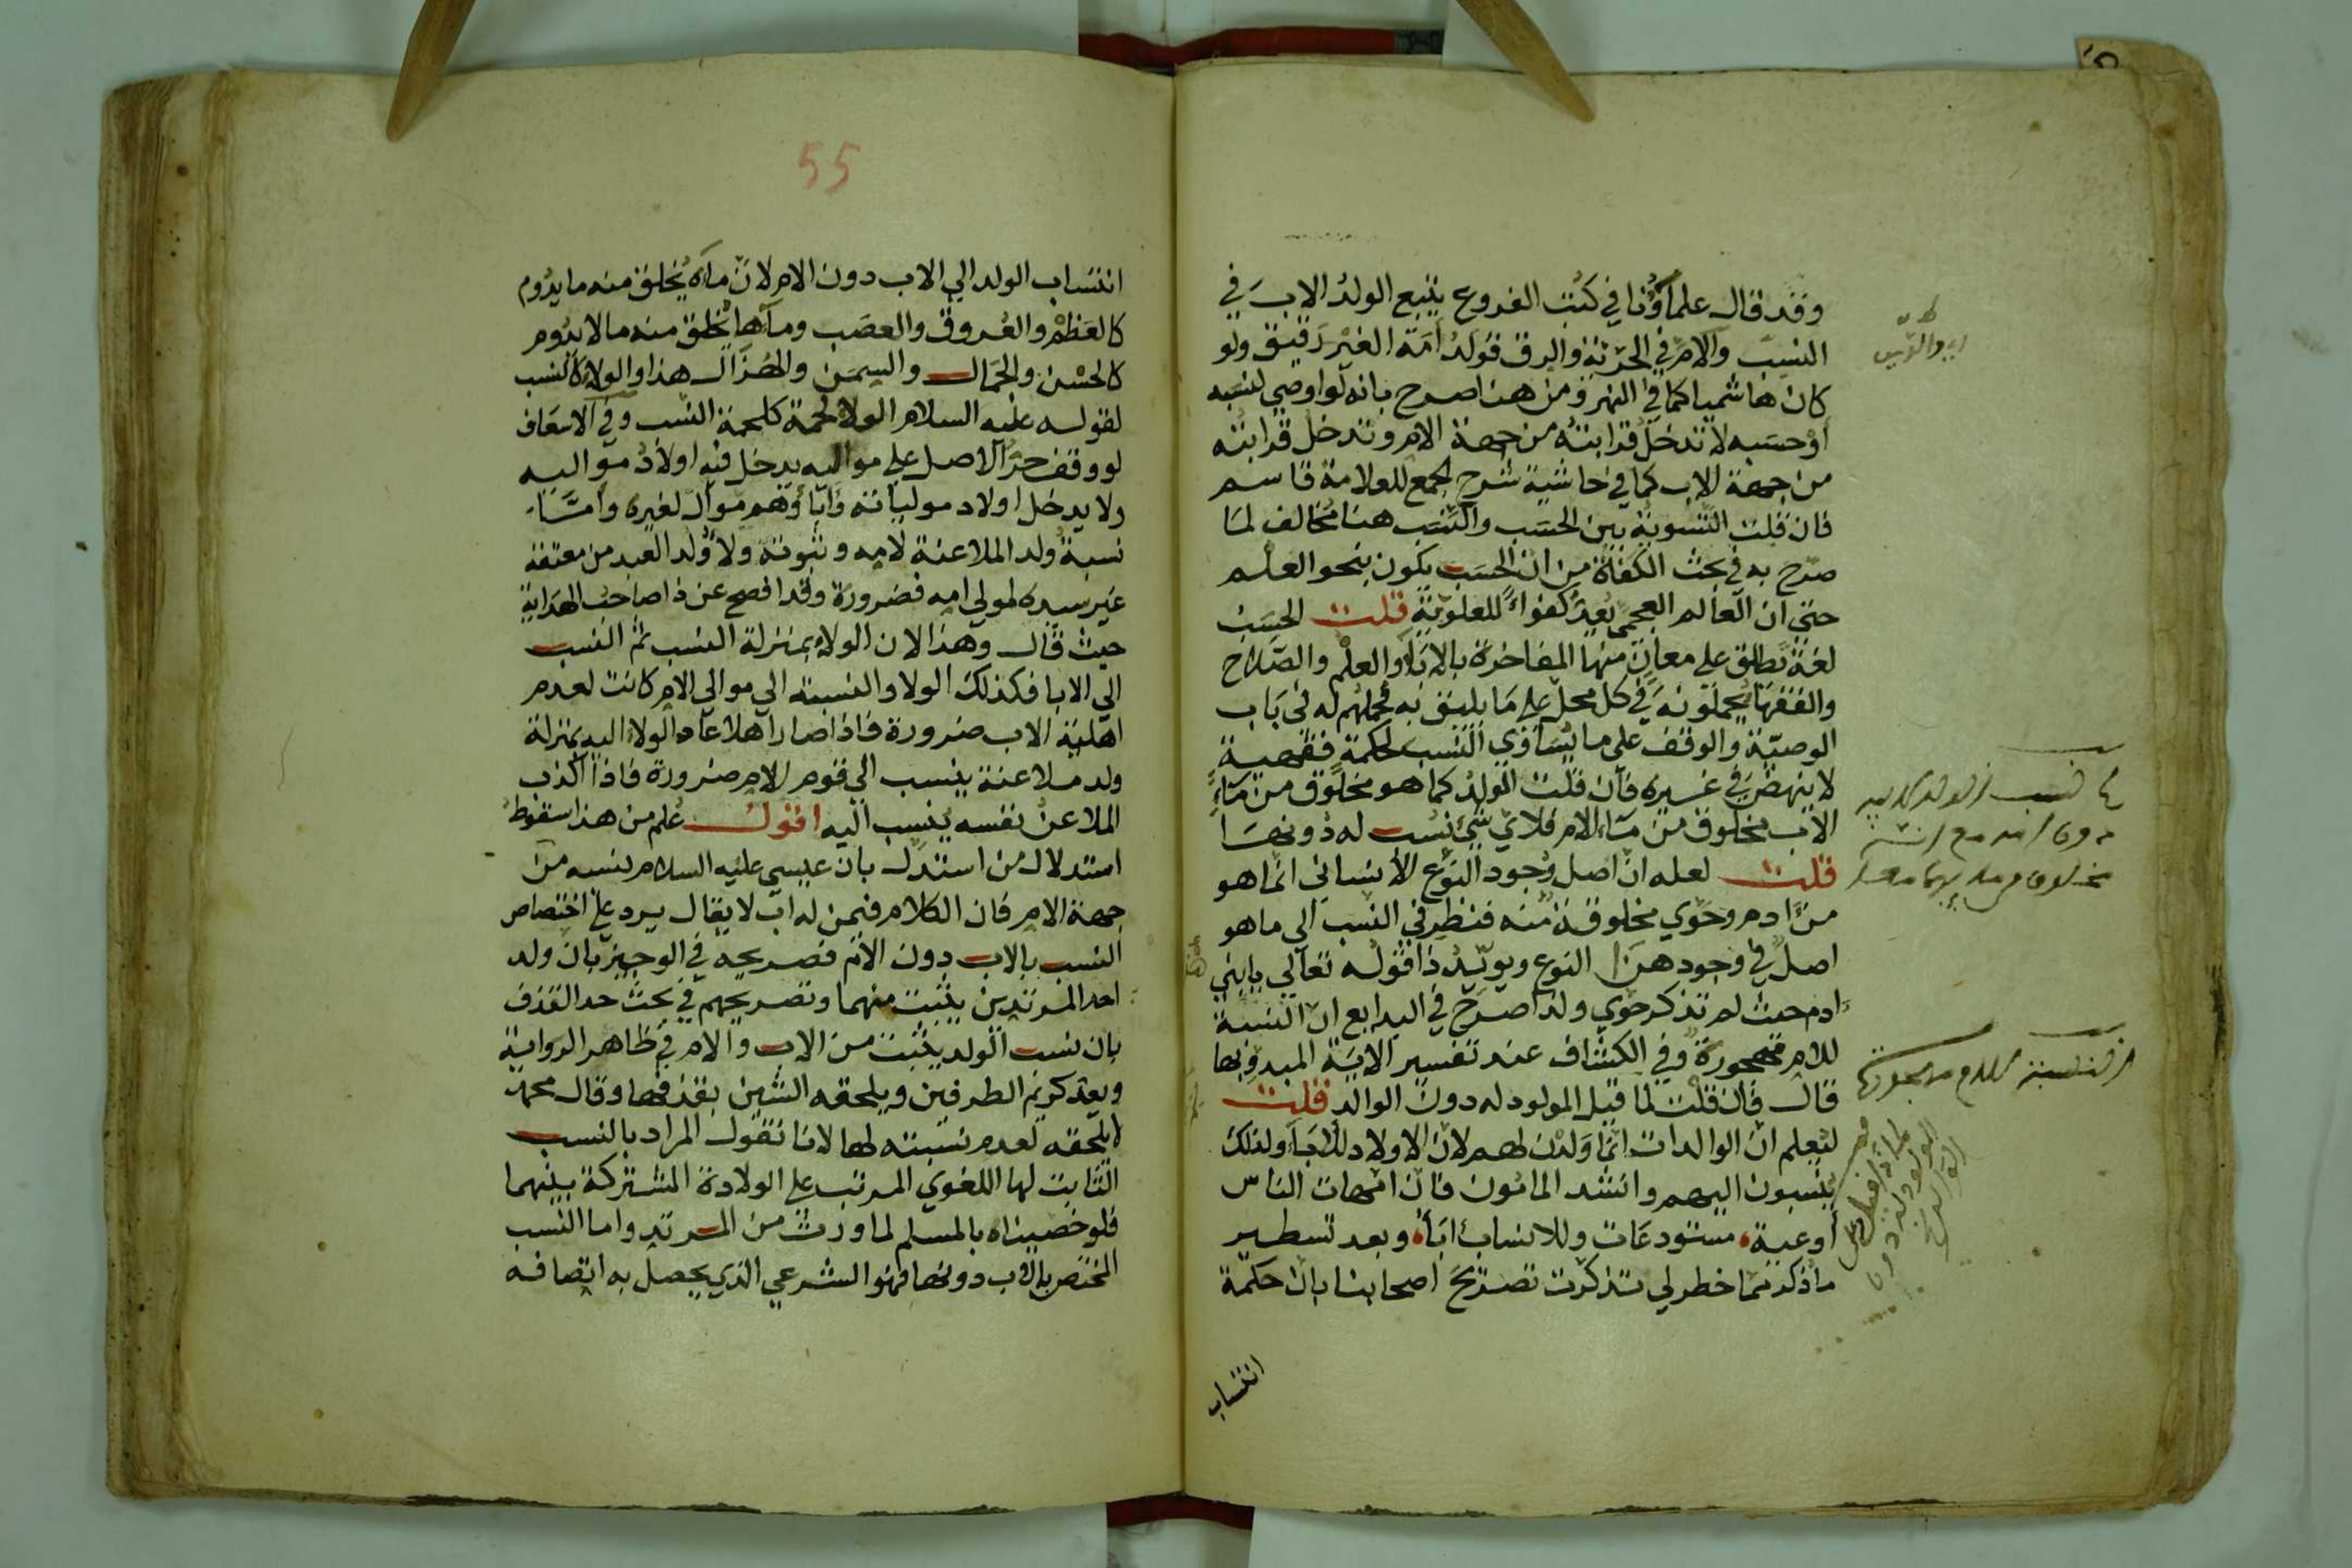 وقد قال علماؤنا في كتب الفروع يتبع الولدُ الاب في
النسب والام في الحرّيّة والرق فولدُ أمَة الغير رقيق ولو
كان هاشميا كما في النهر ومن هنا صرح بانه لو اوصي لنسبه
أوْ حسَبه لا تدخل قرابتهُ من جهة الام وتدخل قرابته
من جهة الاب كما في حاشية شرح المجمع للعلامة قاسم
فان قلت التسوية بين الحسَب والنسَب هنا مخالف لما
صرّح به في بحث الكفاة من ان الحسَب يكون بنحو العلم
حتي ان العالم العجمي يُعدّ كفواً للعلويّة قلت الحسَب
لغة تطلق علي معانٍ منها المفاخرة بالابا والعلم والصّلاح
والفقها يحملونه في كل محل علي ما يليق به فحملهم له في باب
الوصيّة والوقف علي ما يُسَاوي النسب لحكمة فقهية
لا ينهض في غيره فان قلت الولدُ كما هو مخلوق من مَاءِ
الاب مخلوق من مَاء الام فلاي شئ نسب له دُونهَا
قلت لعله ان اصل وُجود النوع الانساني انما هو
منْ ادم وحوي مخلوقة منه فنظر في النسب الي ما هو
اصل في وجود هذا النوع ويويّد ذا قوله تعالي يا بني
ادم حيث لم تذكر حوي ولذا صرح في البدايع ان النسبة
للام مهجورة وفي الكشاف عند تفسير الاية المبدو بها
قال فان قلت لما قيل المولود له دون الوالد قلت
ليعلم ان الوالدات انما ولدْن لهم لان الاولاد للابآ ولذلك
ينسبون اليهم وانشد المامون فان امهات الناس
أوعية، مستودعَات وللانساب ابَآ، وبعد تسطير
ما ذكر مما خطر لي تذكرت تصريحَ اصحابنا بان حكمة
انتساب
55
انتسَاب الولد الي الاب دون الام لانّ ماءه يُخلق منه ما يدُوم
كالعَظم والعُروق والعصَب ومآءها يُخلق منه ما لا يدُوم
كالحسْن والجمَال والسِمَن والهُزَال هذا والولاء كالنسب
لقوله عليه السلام الولاء لحمة كلحمة النسب وفي الاسعَاف
لو وقف حرّ الاصل علي مواليه يدخل فيه اولادُ مواليه
ولا يدخل اولاد مولياته وآباؤهم موال لغيره وأمّا
نسبةُ ولد الملاعنة لامه وثبوتهُ ولاءُ ولد العبد من معتقة
غير سيده لمولي امه فضرورة وقد افصح عن ذا صاحبُ الهداية
حيث قال وهذا لان الولاء بمنزلة النسب ثم النسب
الي الابا فكذلك الولا والنسبة الي موالي الام كانت لعدم
اهلية الاب ضرورة فاذا صار اهلا عاد الولا اليه بمنزلة
ولد ملاعنة ينسب الي قوم الام ضرورة فاذا اكذب
الملاعنُ نفسه ينسب اليه اقول عُلم من هذا سقوط
استدلال من استدل بان عيسي عليه السلام نسبه من
جهة الام فان الكلام فيمن له اب لا يقال يرد علي اختصاص
النسب بالاب دون الام تصريحه في الوجيز بان ولد
احد المرتدين يثبت منهما وتصريحهم في بحث حد القذف
بان نسب الولد يثبت من الاب والام في ظاهر الرواية
ويعد كريم الطرفين ويلحقه الشين بقذفها وقال محمد
لا يلحقه لعدم نسبته لها لانا نقول المراد بالنسب
الثابت لها اللغوي المرتب علي الولادة المشتركة بينهما
فلو خصيناه بالمسلم لما ورث من المرتد واما النسب
المختص بالاب دونها فهو الشرعي الذي يحصل به اتصافه